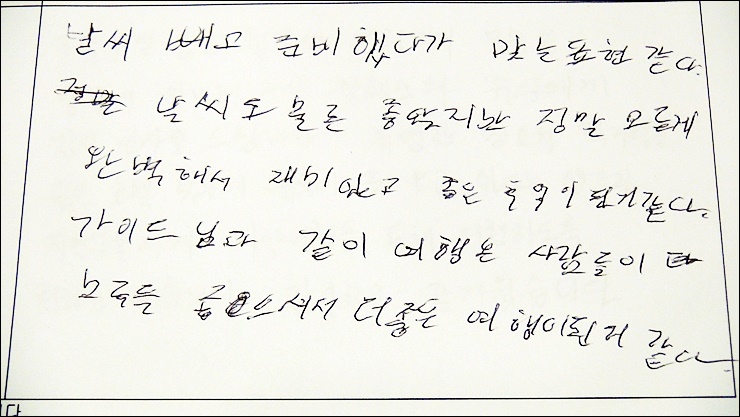 날씨 빼고 준비했다가 맞는표현 같다.
날씨도 물론 좋았지만 정말 모든게
완벽해서 재미있고 좋은 추억이 된거같다.
가이드님과 같이 여행온 사람들이
모두들 좋으셔서 더좋은 여행이된거 같다
다